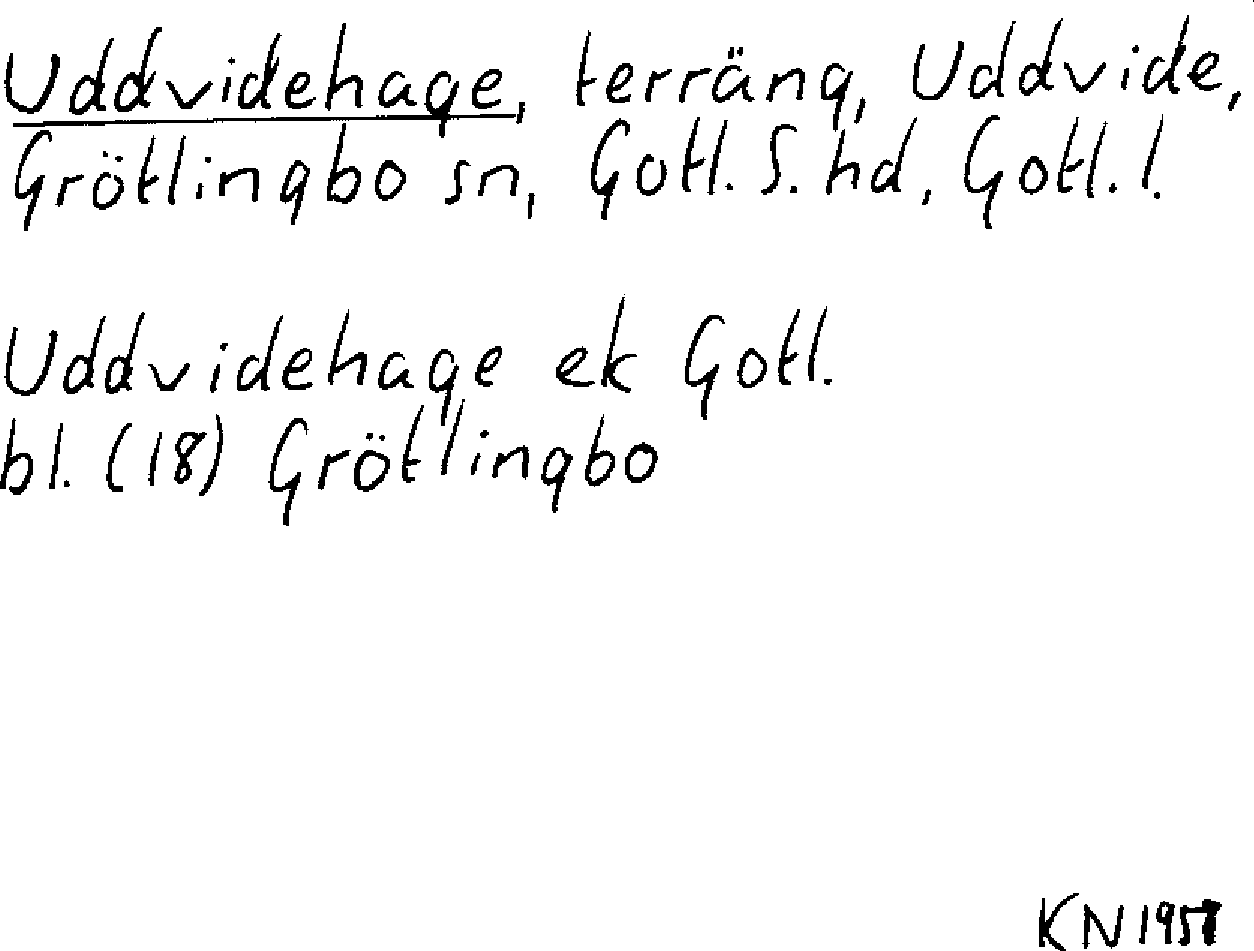 Uddvidehage, terräng, Uddvide,
Grötlingbo sn, Gotl. S. hd, Gotl. l.
Uddvidehage ek Gotl.
bl. (18) Grötlingbo
KN